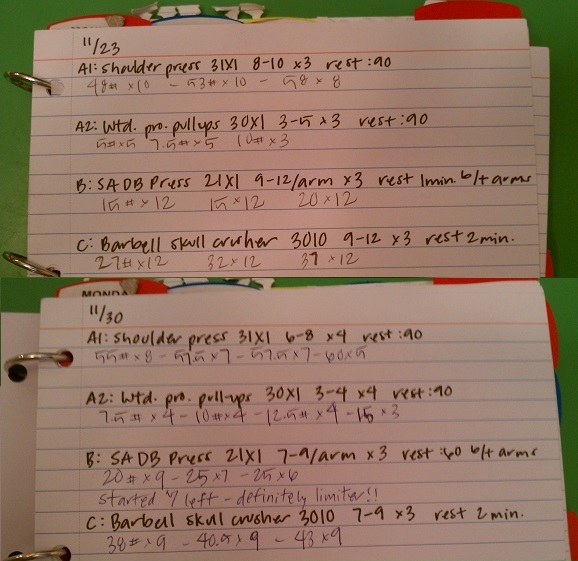 11/23
A1: Shoulder press 31X1 8-10 x3 rest :90
48# x10 - 53# x10 - 58 x 8
A2: Wtd. pro. pullups 30X1 3-5 x3 rest :90
5# x5 7.5# x5 10# x3
B: SA DB Press 21X1 9-12/arm x3 rest 1min. b/t arms
15# x 12 15 x 12 20 x 12
C: Barbell skull crusher 3010 9-12 x3 rest 2 min.
27# x12 32 x 12 37 x 12
MONDA
11/30
A1: Shoulder press 31X1 6-8 x4 rest :90
55# x 8 - 57.5 x 7 - 57.5 x 7 - 60 x 5
A2: Wtd. pro. pull-ups 30X1 3-4 x4 rest :90
7.5# x 4 - 10# x4 - 12.5# x 4 - 15 x 3
B: SA DB Press 21X1 7-9/arm x3 rest :60 b/t arms
20# x 9 - 25 x 7 - 25 x 6
Started w/ left - definitely limiter!!
C: Barbell skull crusher 3010 7-9 x3 rest 2 min.
38# x 9 - 40.5 x 9 - 43 x 9